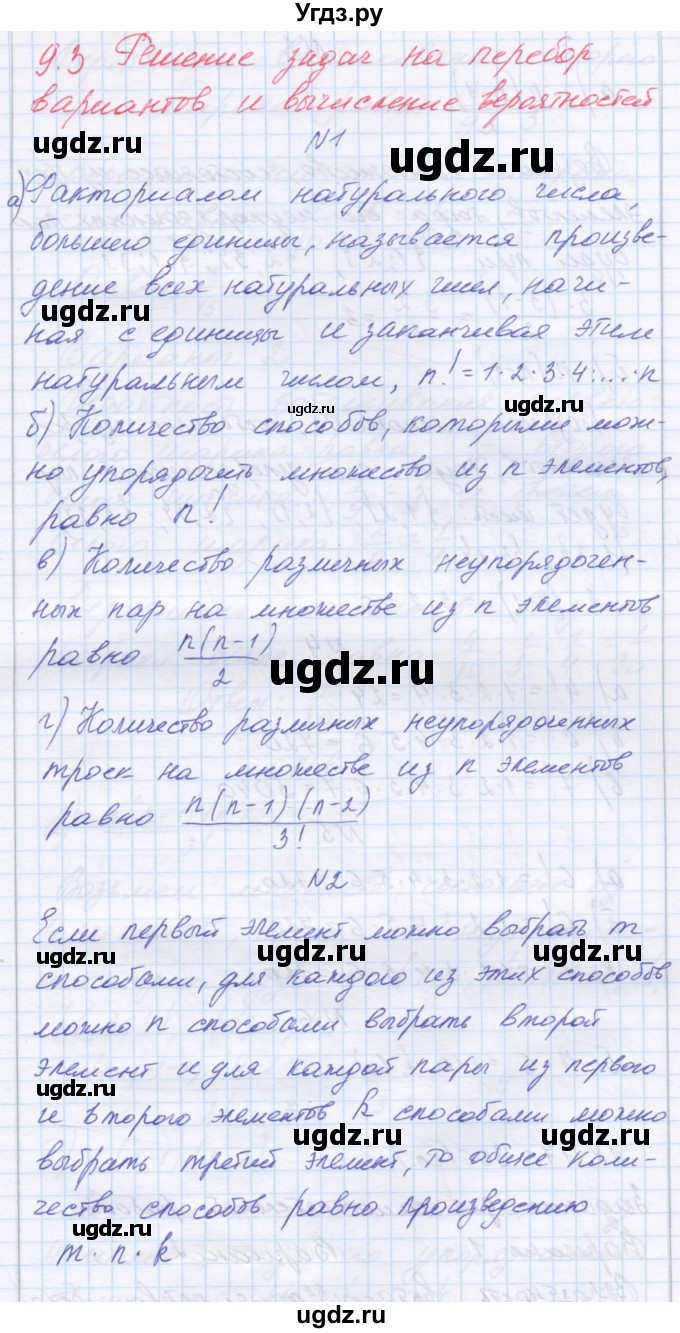 Угдз.ру
9.3 Решение задач на перебор
вариантов и вычисление вероятностей
ugdz.ru ugdz.ru
N1
а) Факториалом натурального числа,
ugdz.ru
большего единицы, называется произве-
дение всех натуральных чисел, начи-
ugdz.ru ugdz.ru
ная с единицы и заканчивая этим
натуральным числом, n! = 1·2·3·4·...·n
ugdz.ru ugdz.ru
б) Количество способов, которыми мож-
но упорядочить множество из n элементов,
равно n!
ugdz.ru ugdz.ru
в) Количество различных неупорядочен-
ных пар на множестве из n элементов
равно n(n-1)/2
ugdz.ru
г) Количество различных неупорядоченных
троек на множестве из n элементов
равно n(n-1)(n-2)/3!
N2
Если первый элемент можно выбрать m
ugdz.ru ugdz.ru ugdz.ru
способами, для каждого из этих способов
можно n способами выбрать второй
элемент и для каждой пары из первого
ugdz.ru
и второго элементов k способами можно
ugdz.ru ugdz.ru
выбрать третий элемент, то общее коли-
чество способов равно произведению
ugdz.ru ugdz.ru
m·n·k
ugdz.ru